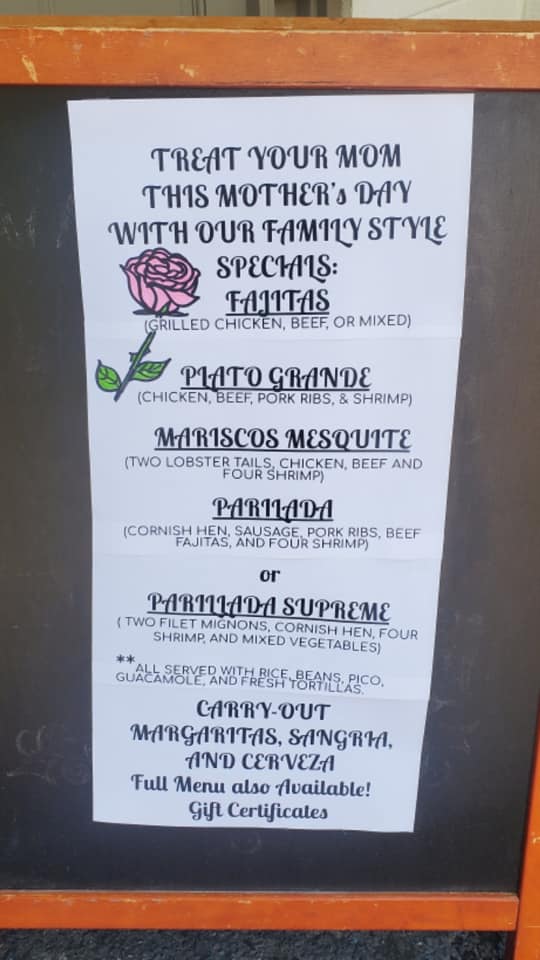 TREAT YOUR MOM
THIS MOTHER's DAY
WITH OUR FAMILY STYLE
SPECIALS:
FAJITAS
(GRILLED CHICKEN, BEEF, OR MIXED)
PLATO GRANDE
(CHICKEN, BEEF, PORK RIBS, & SHRIMP)
MARISCOS MESQUITE
(TWO LOBSTER TAILS, CHICKEN, BEEF AND
FOUR SHRIMP)
PARILADA
(CORNISH HEN, SAUSAGE, PORK RIBS, BEEF
FAJITAS, AND FOUR SHRIMP)
or
PARILLADA SUPREME
( TWO FILET MIGNONS, CORNISH HEN, FOUR
SHRIMP, AND MIXED VEGETABLES)
**ALL SERVED WITH RICE, BEANS, PICO,
GUACAMOLE, AND FRESH TORTILLAS.
CARRY-OUT
MARGARITAS, SANGRIA,
AND CERVEZA
Full Menu also Available!
Gift Certificates